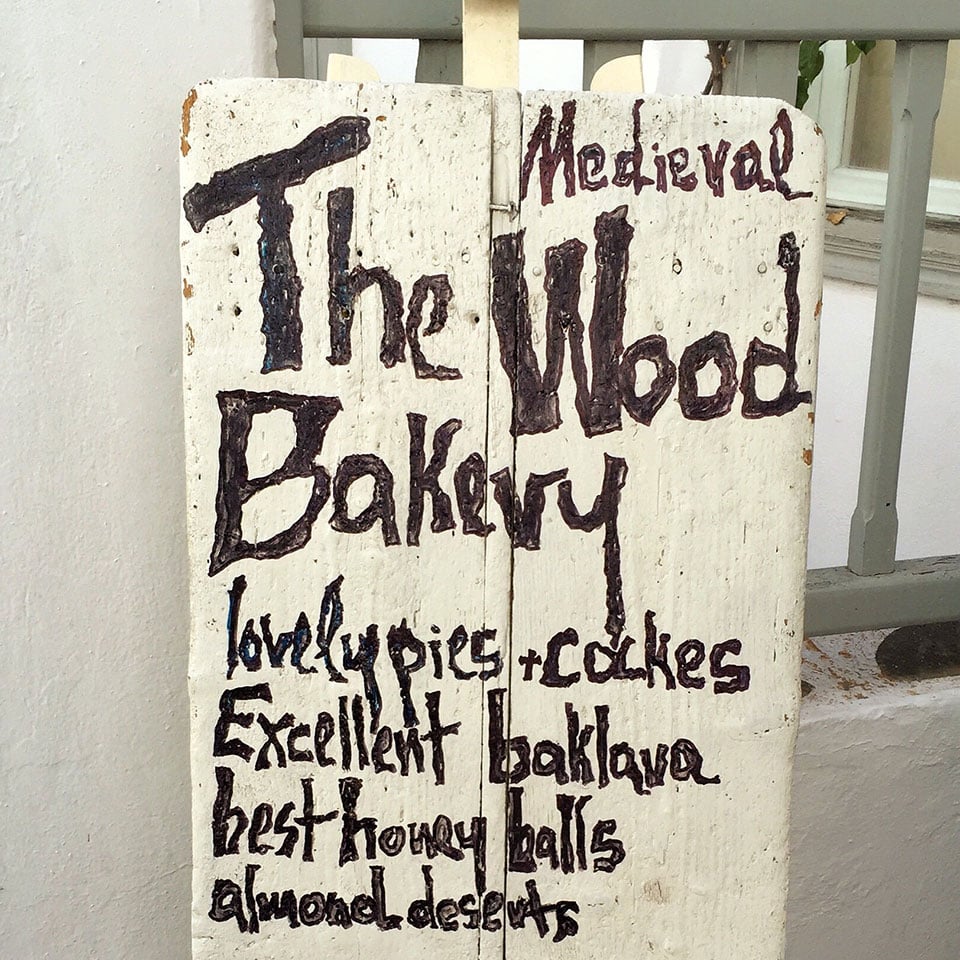 Medieval
The Wood
Bakery
lovely pies + cakes
Excellent baklava
best honey balls
almond deserts